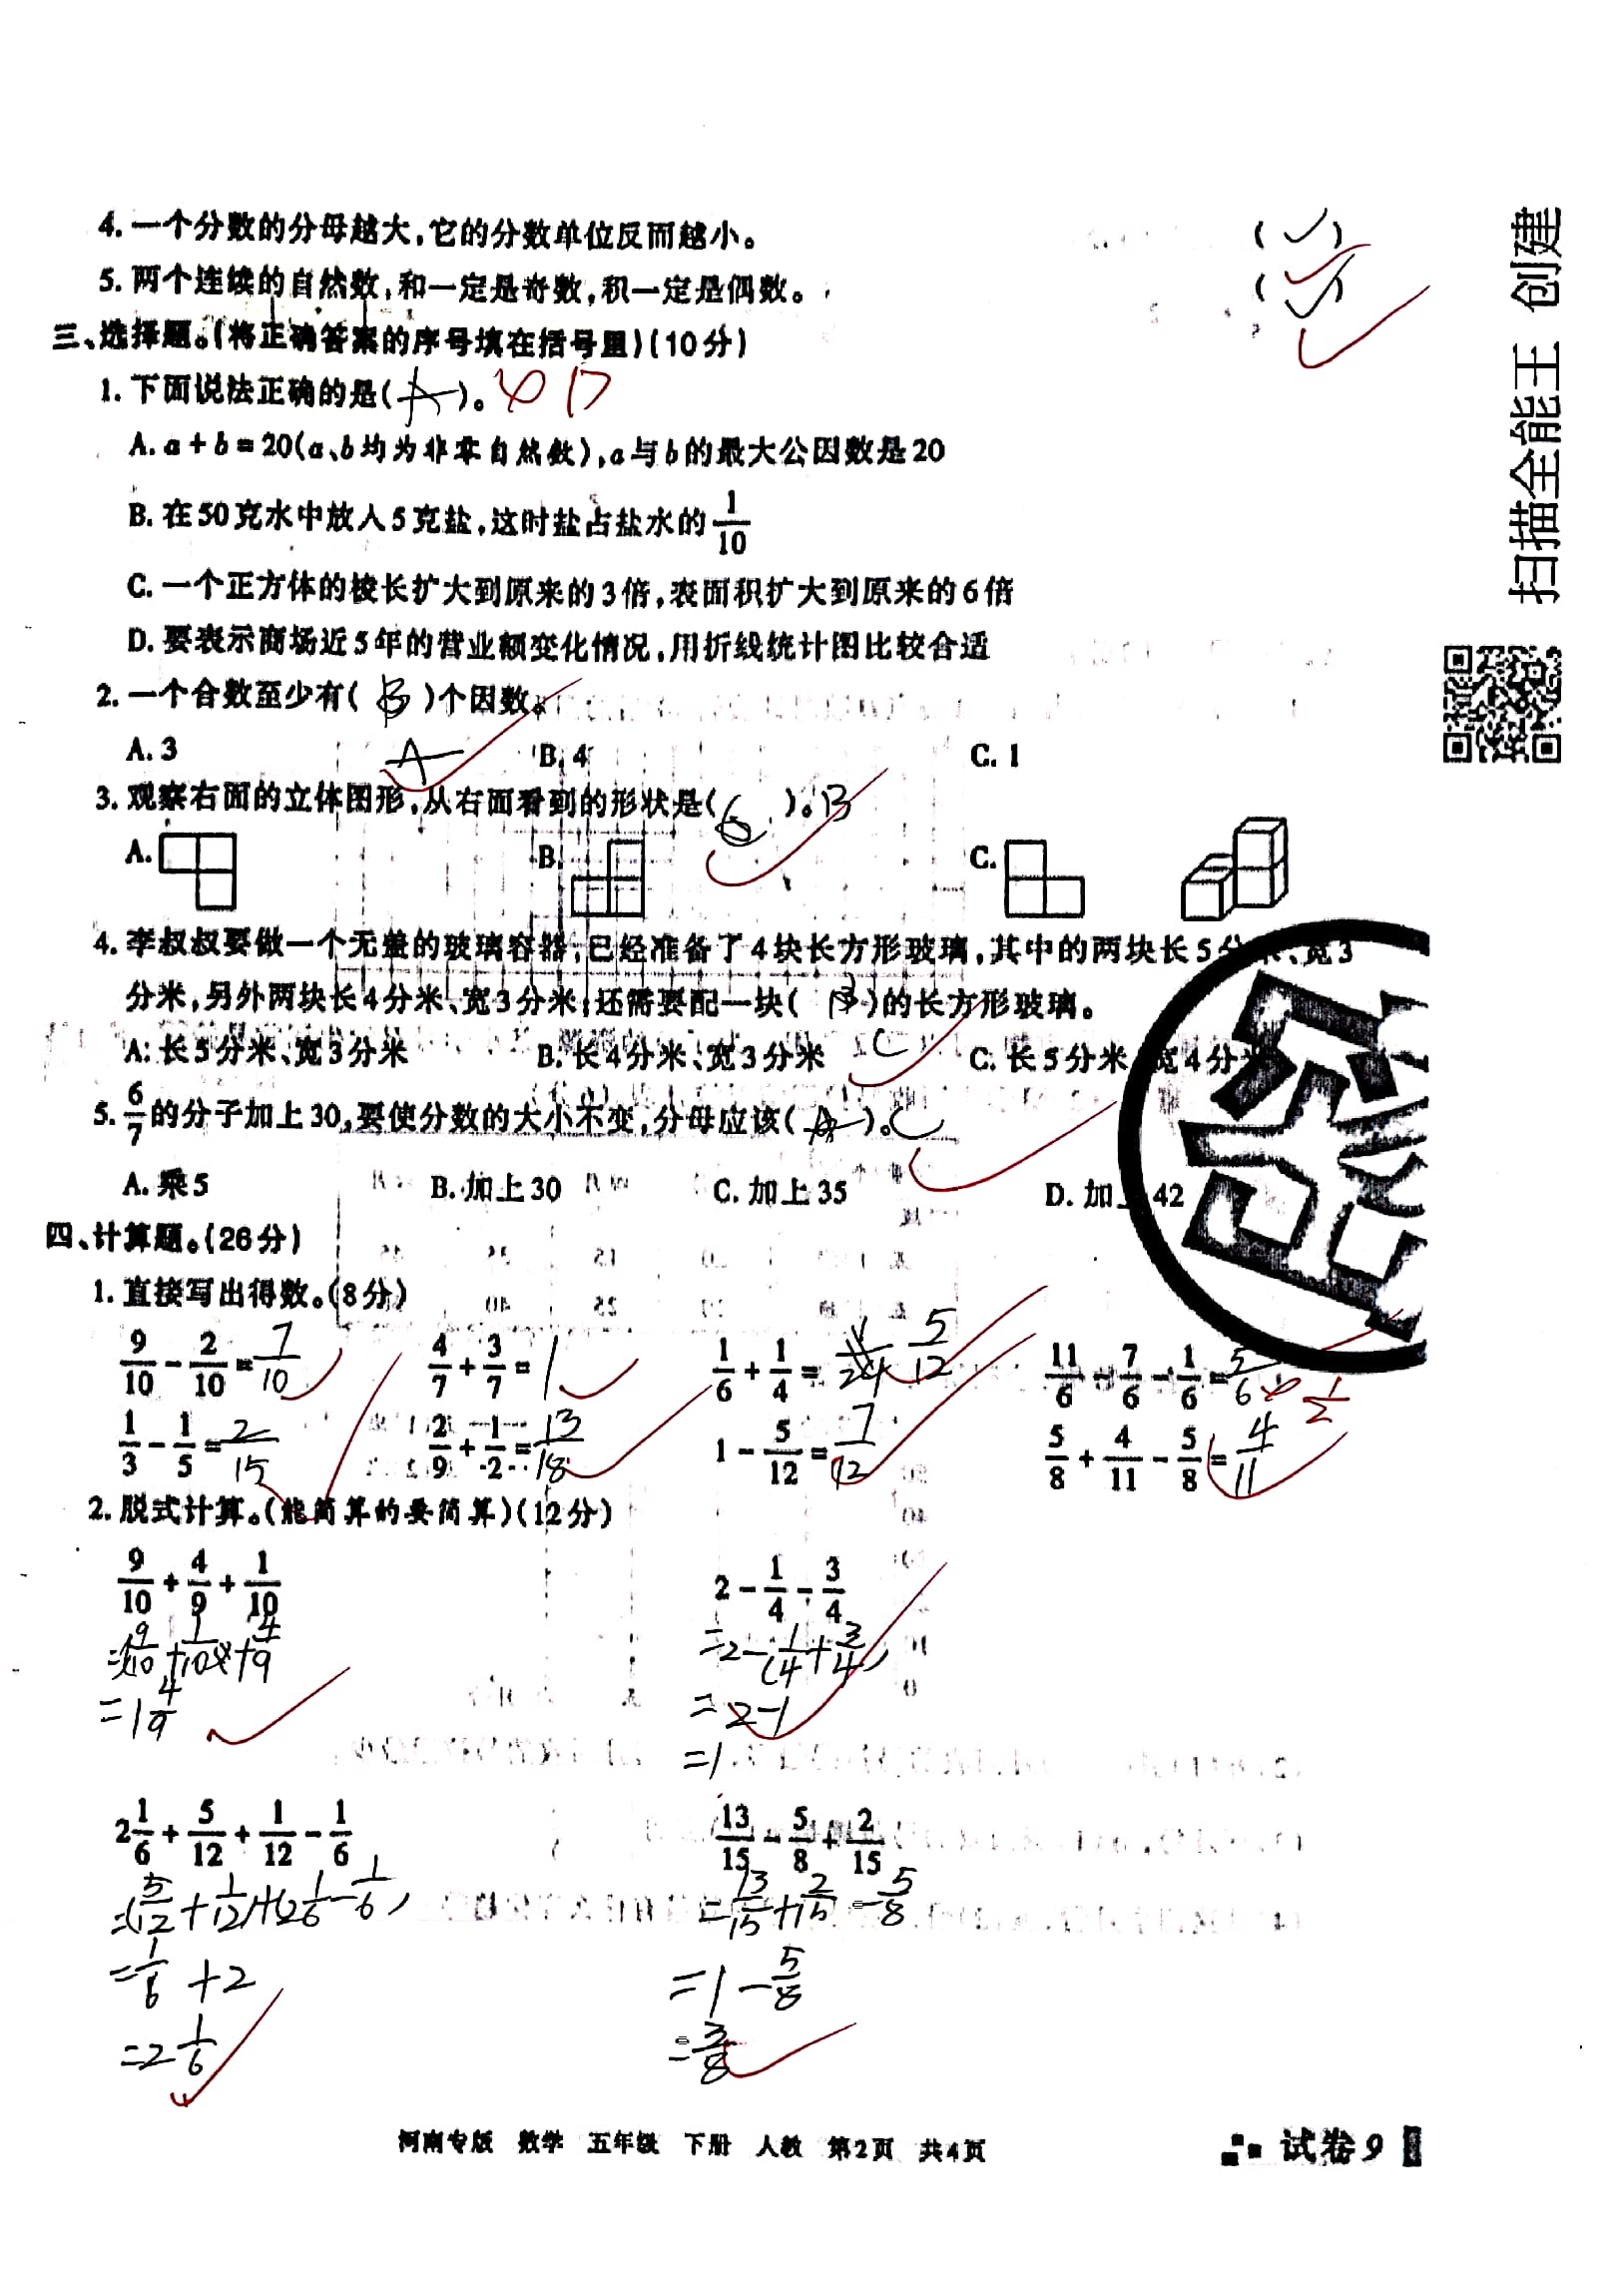 4. 一个分数的分母越大,它的分数单位反而越小。 (✓)
5. 两个连续的自然数,和一定是奇数,积一定是偶数。 (✓)
三、选择题。(将正确答案的序号填在括号里)(10分)
1. 下面说法正确的是( A )。 D
A. a + b = 20(a、b均为非零自然数),a与b的最大公因数是20
B. 在50克水中放入5克盐,这时盐占盐水的1/10
C. 一个正方体的棱长扩大到原来的3倍,表面积扩大到原来的6倍
D. 要表示商场近5年的营业额变化情况,用折线统计图比较合适
2. 一个合数至少有( B )个因数。
A. 3 A B. 4 C. 1
3. 观察右面的立体图形,从右面看到的形状是( )。B
A. B. C.
4. 李叔叔要做一个无盖的玻璃容器,已经准备了4块长方形玻璃,其中的两块长5分米、宽3
分米,另外两块长4分米、宽3分米,还需要配一块( B )的长方形玻璃。
A. 长5分米、宽3分米 B. 长4分米、宽3分米 C C. 长5分米、宽4分米
5. 6/7的分子加上30,要使分数的大小不变,分母应该( A )。C
A. 乘5 B. 加上30 C. 加上35 D. 加上42
四、计算题。(26分)
1. 直接写出得数。(8分)
9/10 - 2/10 = 7/10 4/7 + 3/7 = 1 1/6 + 1/4 = 5/12 11/6 - 7/6 - 1/6 = 5/6 1/2
1/3 - 1/5 = 2/15 2/9 + 1/2 = 13/18 1 - 5/12 = 7/12 5/8 + 4/11 - 5/8 = 4/11
2. 脱式计算。(能简算的要简算)(12分)
9/10 + 4/9 + 1/10 2 - 1/4 - 3/4
= 9/10 + 1/10 + 4/9 = 2 - (1/4 + 3/4)
= 1 4/9 = 2 - 1
= 1
2 1/6 + 5/12 + 1/12 - 1/6 13/15 - 5/8 + 2/15
= (5/12 + 1/12) + (2 1/6 - 1/6) = 13/15 + 2/15 - 5/8
= 1/6 + 2 = 1 - 5/8
= 2 1/6 = 3/8
河南专版 数学 五年级 下册 人教 第2页 共4页
试卷9
扫描全能王 创建